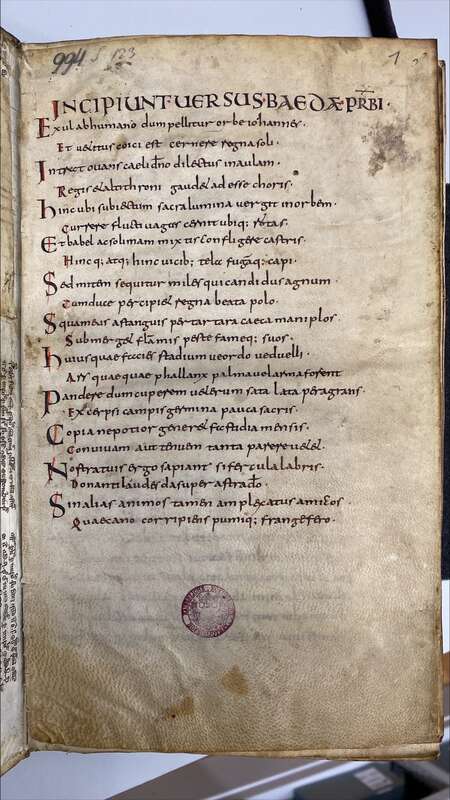 994 S 123
1
INCIPIUNT UERSUS BAEDAE PRBI.
Exul ab humano dum pellitur orbe iohannes.
Et uetitus coici est cernere regna soli.
Intrat ouans caeli dno dilectus in aulam.
Regis & altithroni gaudet adesse choris.
hinc ubi subiectum sacra lumina uergit in orbem.
Currere fluctiuagas cernit ubiq; rotas.
Et babel ac solimam mixtis confligere castris.
Hinc q; atq; hinc uicib; tela fugaq; capi.
Sed mitem sequitur miles qui candidus agnum.
Cum duce percipiet regna beata polo.
Squameus ast anguis per tartara caeca maniplos.
Submerget flamis peste fameq; suos.
huius quae facies stadium ue ordo ue duelli.
Ars quae quae phallanx palma uel arma forent
Pandere dum cuperem ueterum sata lata peragrans.
Excerpsi campis germina pauca sacris.
Copia ne potior generet fastidia mensis.
Conuiuam aut tenuem tanta parere uetet.
Nostra tuis ergo sapiant si fercula labris.
Donanti laudes da super astra do.
Sin alias animos tamen amplecatus amicos.
Quae cano corripiens pumiq; frange fero.